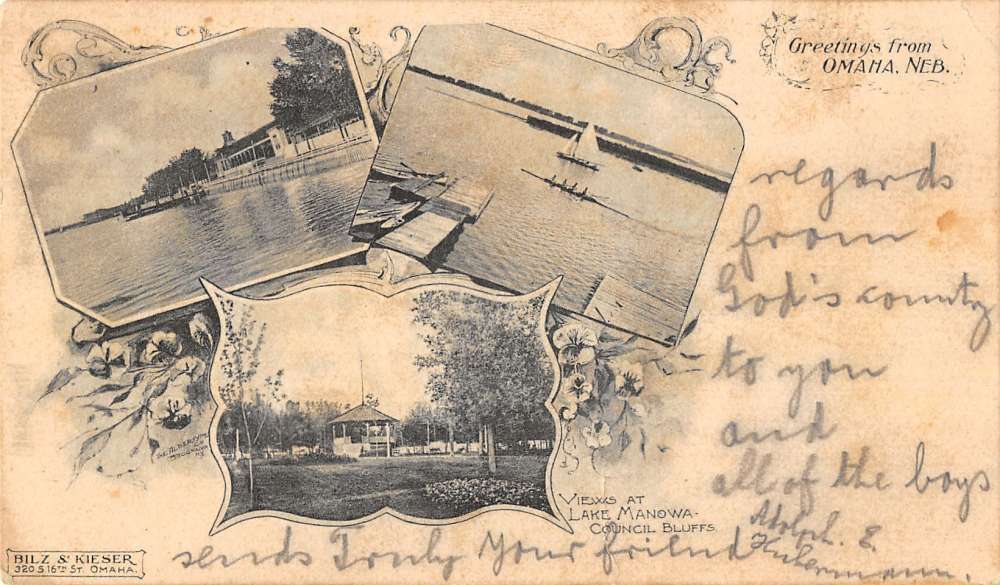 Greetings from
OMAHA, NEB.
regards
from
God's county
to you
and
all of the boys
sends Truly Your friend
Adolph. E.
VIEWS AT
LAKE MANOWA-
COUNCIL BLUFFS.
THE ALBERTYPE
CO
BROOKLYN
N.Y.
BILZ & KIESER
320 S. 16TH ST. OMAHA.